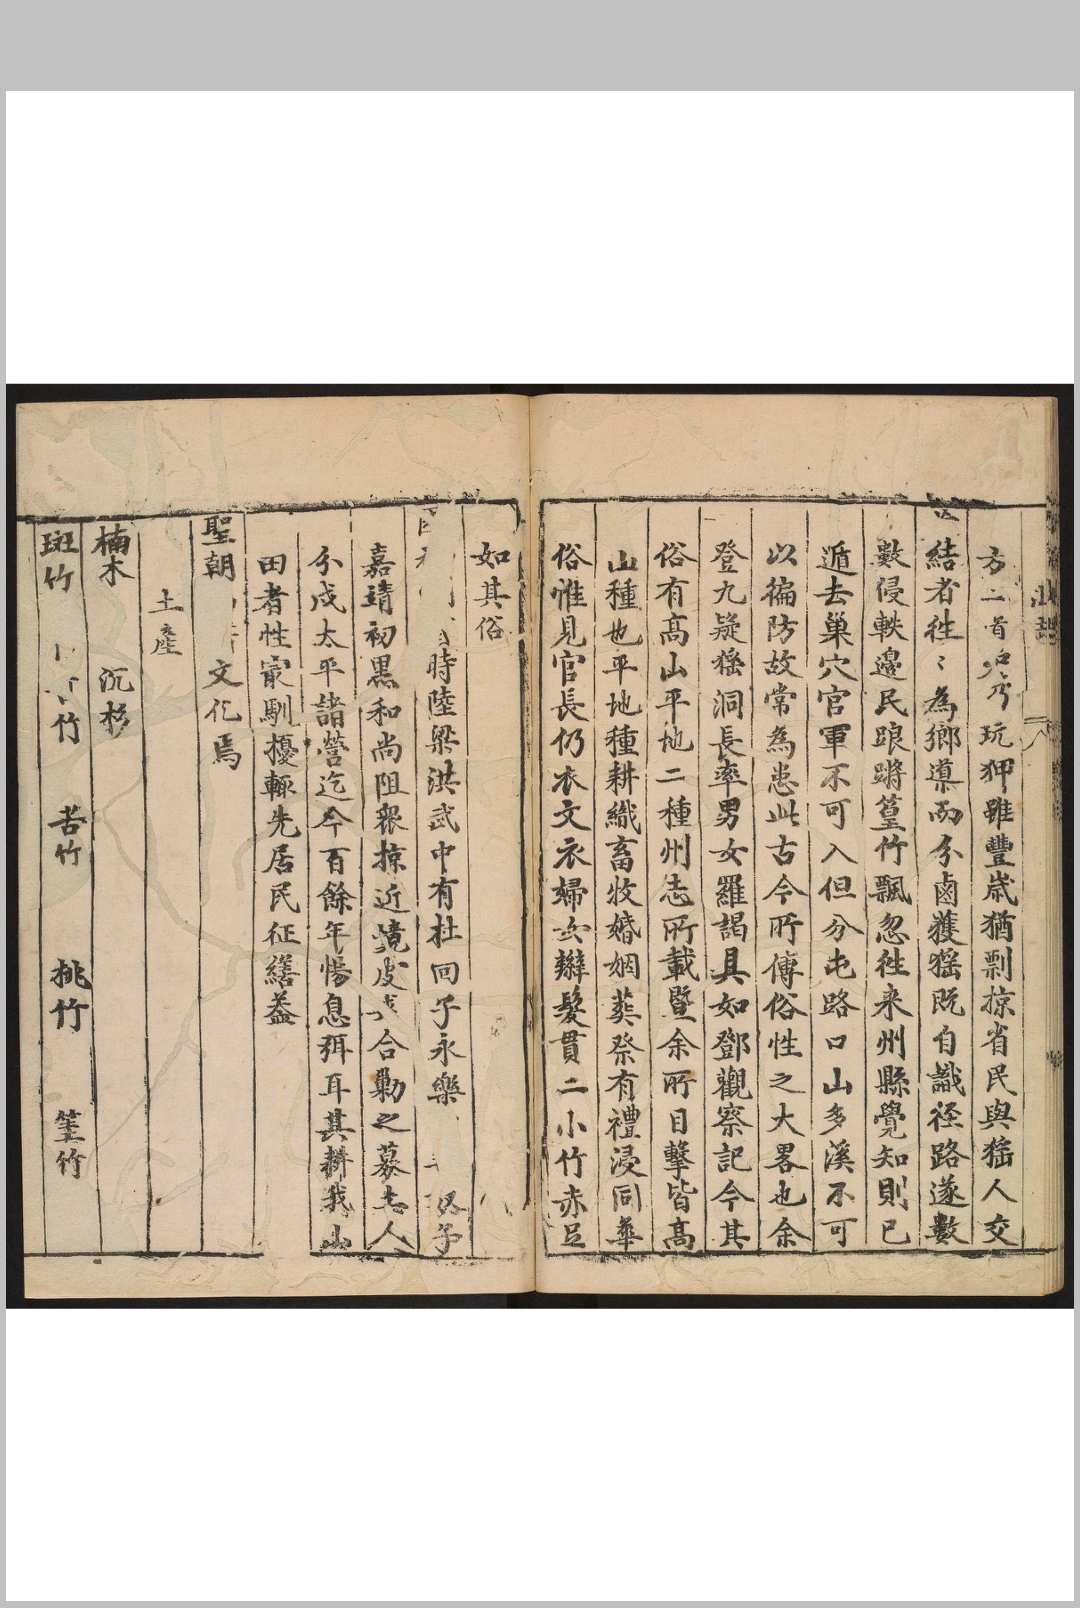 方二首
玩狎雖豐歲猶剽掠省民與猺人交
結者徃〻為鄉導而分鹵獲猺既自識徑路遂數
數侵軼邊民踉蹡篁竹飄忽徃来州縣覺知則已
遁去巢穴官軍不可入但分屯路口山多溪不可
以徧防故常為患此古今所傳俗性之大畧也余
登九疑猺洞長率男女羅謁具如鄧觀察記今其
俗有髙山平地二種州志所載暨余所目擊皆髙
山種也平地種耕織畜牧婚姻葬祭有禮浸同華
俗惟見官長仍衣文衣婦女辮髮貫二小竹赤足
如其俗
國
時陸梁洪武中有杜回子永樂
子
嘉靖初黒和尚阻衆掠近境皮
合勦之募土人
分戍太平諸營迄今百餘年惕息弭耳其耕我山
田者性㝡馴擾輒先居民征繕葢
聖朝
文化焉
土產
楠木 沉杉
斑竹
竹 苦竹 桃竹 筀竹